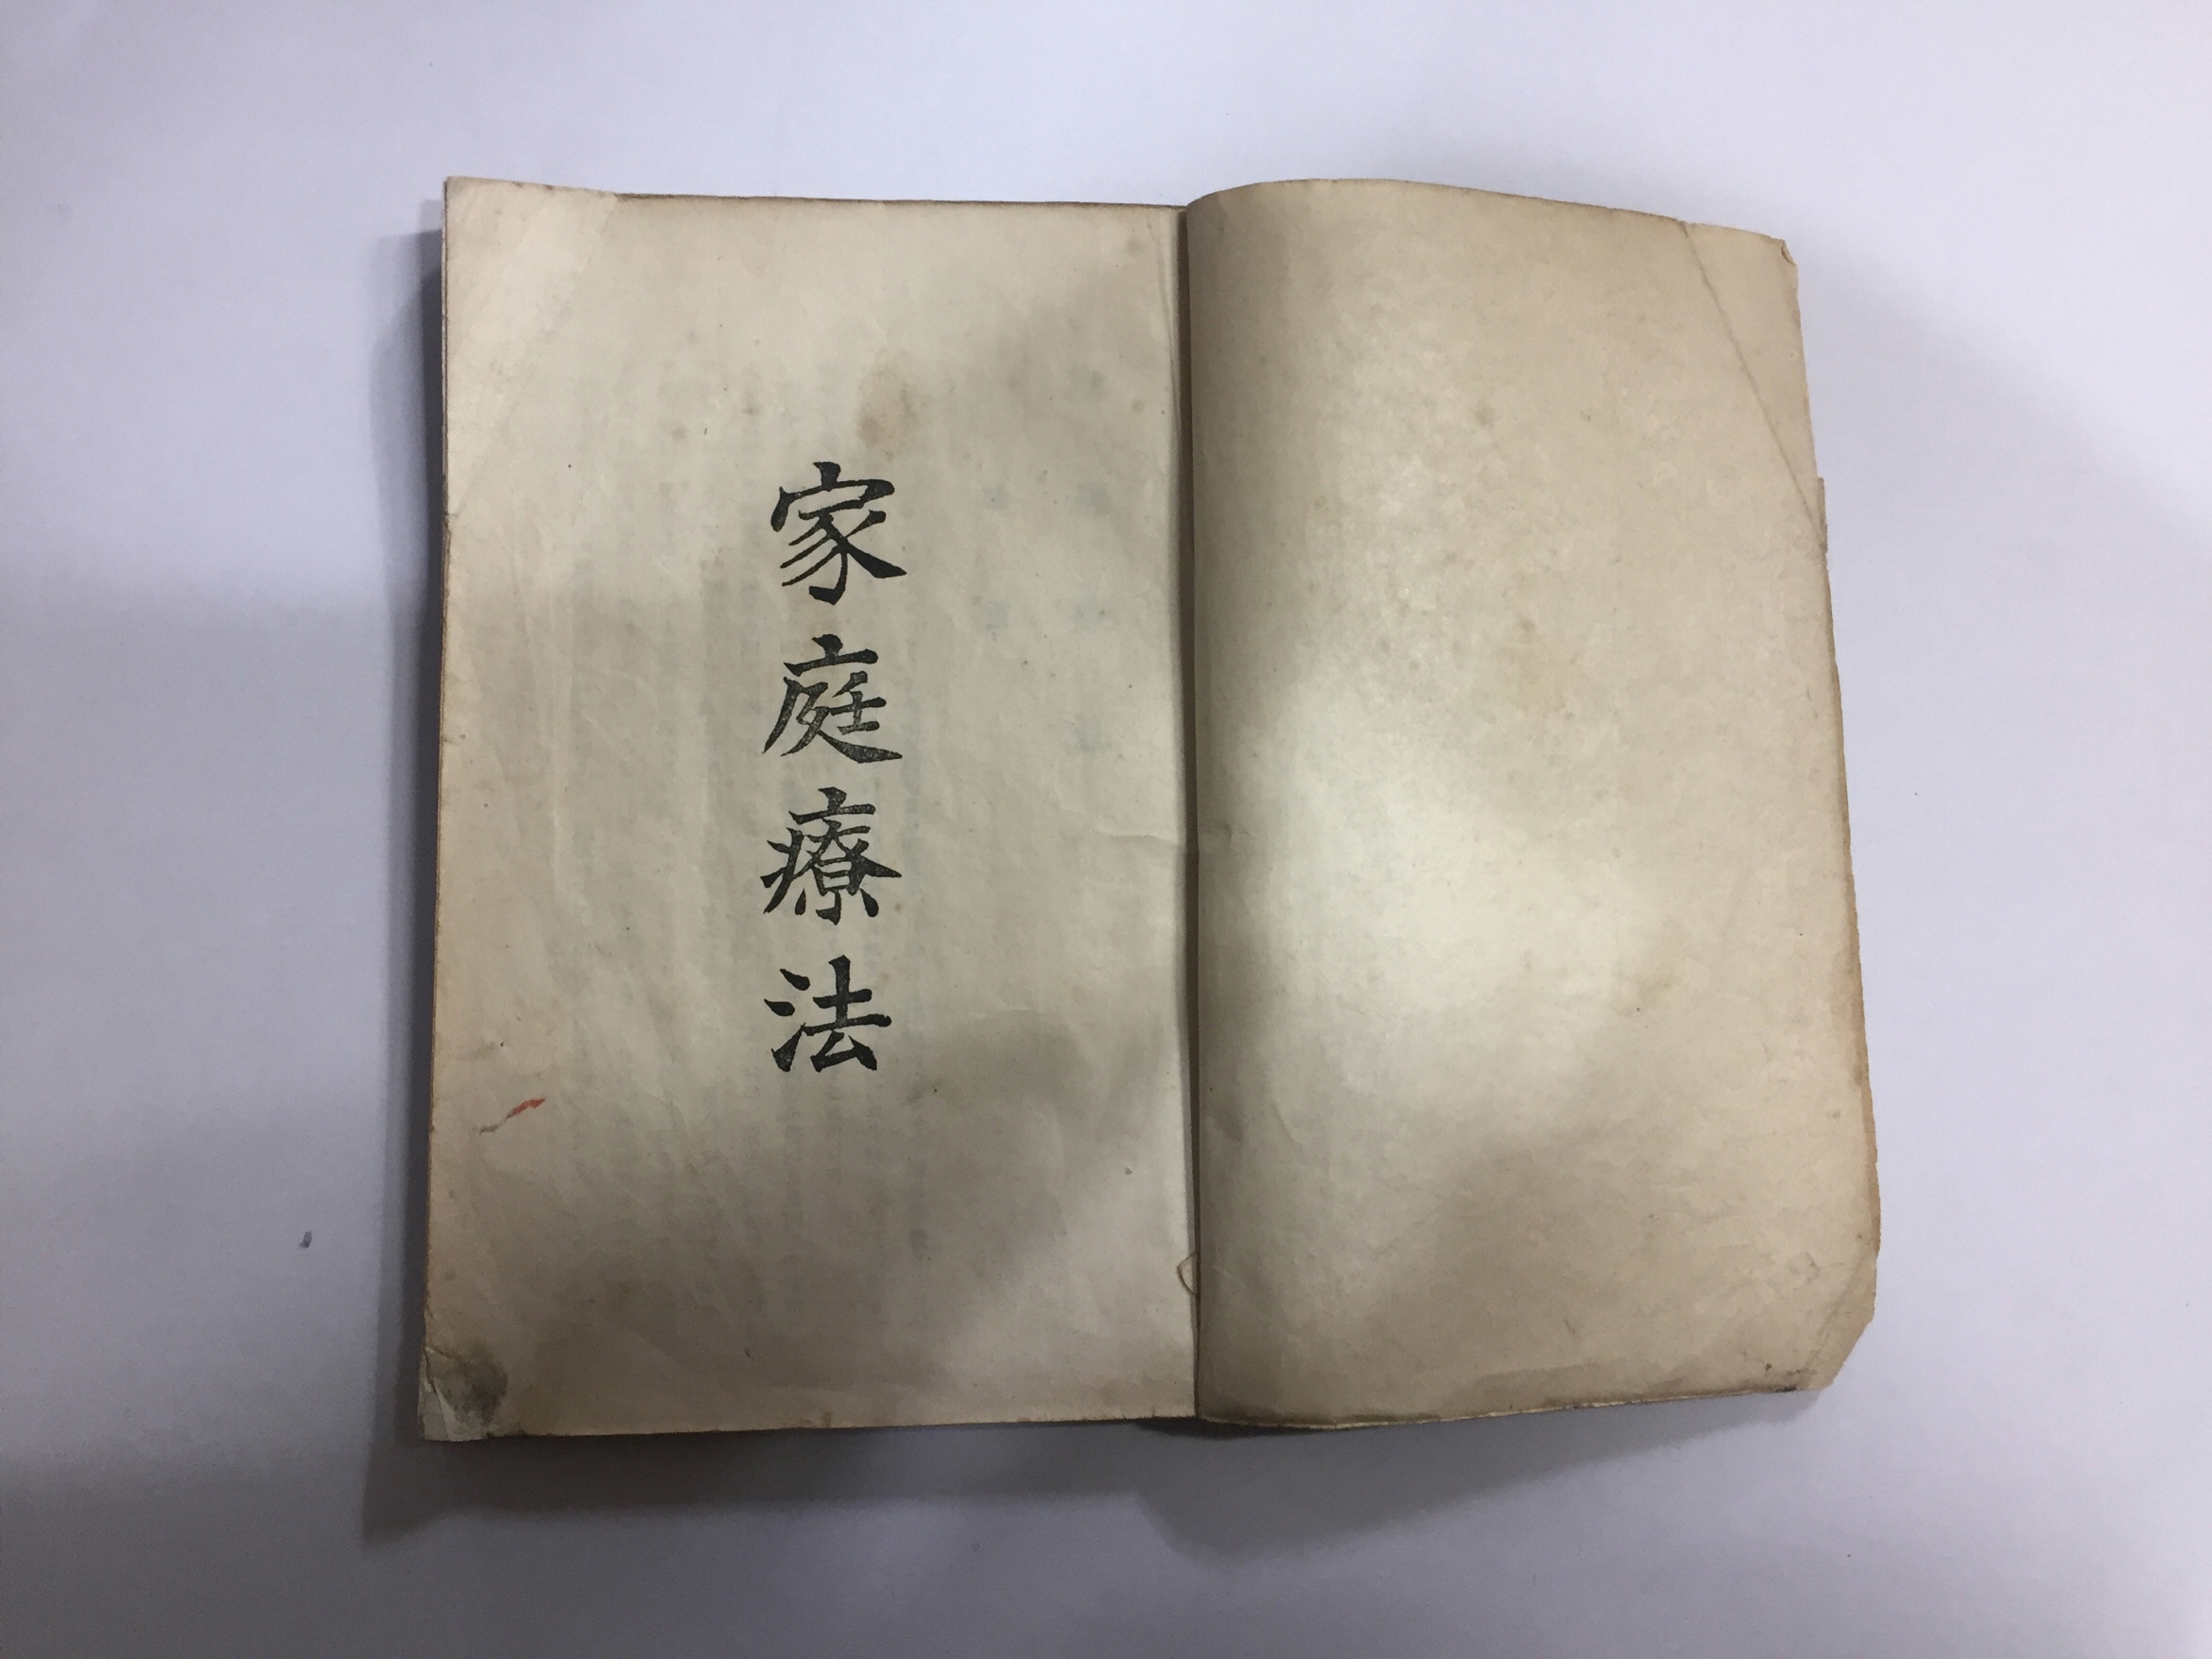 家庭療法